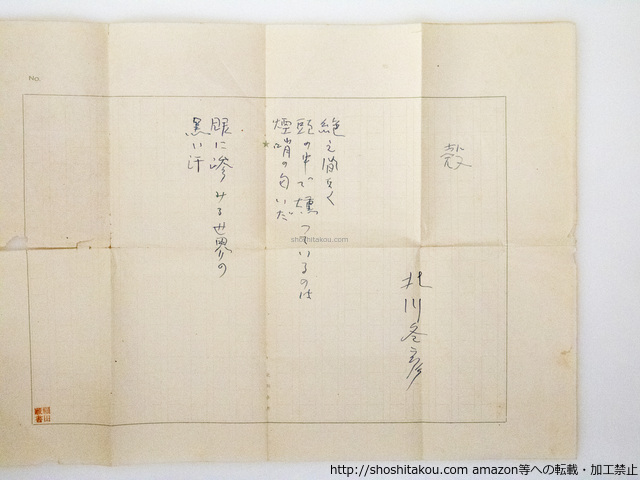 No.
殻
北川冬彦
絶え間なく
頭の中で燻つているのは
煙硝の匂いだ
眼に滲みる世界の
黒い汗
shoshitakou.com
http://shoshitakou.com amazon等への転載・加工禁止